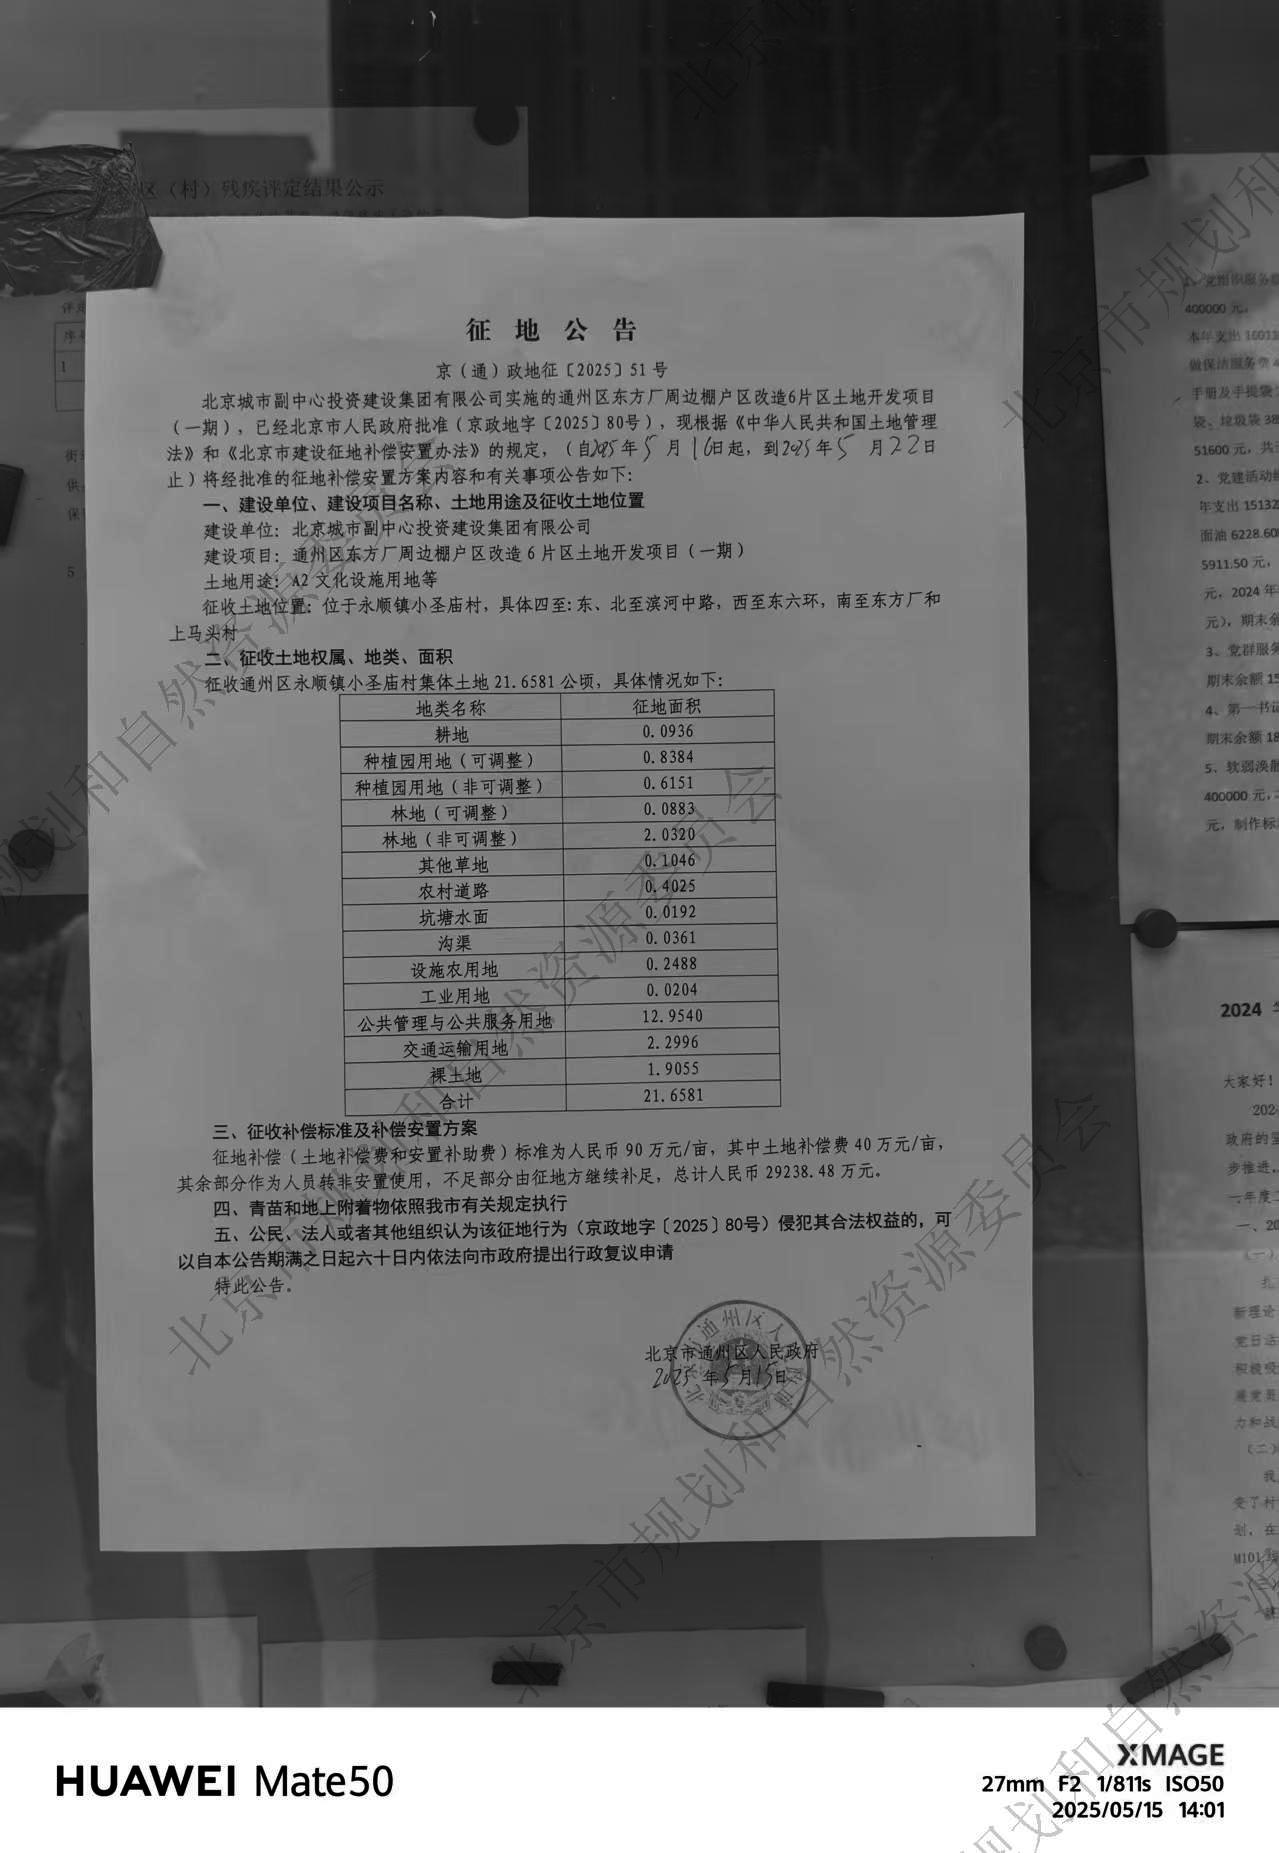 区（村）残疾评定结果公示
评定
序号
1
街道
供
保
5
征 地 公 告
京（通）政地征〔2025〕51 号
北京城市副中心投资建设集团有限公司实施的通州区东方厂周边棚户区改造6片区土地开发项目
（一期），已经北京市人民政府批准（京政地字〔2025〕80号），现根据《中华人民共和国土地管理
法》和《北京市建设征地补偿安置办法》的规定，（自2025年5月16日起，到2025年5月22日
止）将经批准的征地补偿安置方案内容和有关事项公告如下：
一、建设单位、建设项目名称、土地用途及征收土地位置
建设单位：北京城市副中心投资建设集团有限公司
建设项目：通州区东方厂周边棚户区改造 6 片区土地开发项目（一期）
土地用途：A2 文化设施用地等
征收土地位置：位于永顺镇小圣庙村，具体四至：东、北至滨河中路，西至东六环，南至东方厂和
上马头村
二、征收土地权属、地类、面积
征收通州区永顺镇小圣庙村集体土地 21.6581 公顷，具体情况如下：
地类名称 征地面积
耕地 0.0936
种植园用地（可调整） 0.8384
种植园用地（非可调整） 0.6151
林地（可调整） 0.0883
林地（非可调整） 2.0320
其他草地 0.1046
农村道路 0.4025
坑塘水面 0.0192
沟渠 0.0361
设施农用地 0.2488
工业用地 0.0204
公共管理与公共服务用地 12.9540
交通运输用地 2.2996
裸土地 1.9055
合计 21.6581
三、征收补偿标准及补偿安置方案
征地补偿（土地补偿费和安置补助费）标准为人民币 90 万元/亩，其中土地补偿费 40 万元/亩，
其余部分作为人员转非安置使用，不足部分由征地方继续补足，总计人民币 29238.48 万元。
四、青苗和地上附着物依照我市有关规定执行
五、公民、法人或者其他组织认为该征地行为（京政地字〔2025〕80号）侵犯其合法权益的，可
以自本公告期满之日起六十日内依法向市政府提出行政复议申请
特此公告。
北京市通州区人民政府
2025年5月15日
1、党组织服务
400000 元，
本年支出 16011
做保洁服务费 4
手册及手提袋
袋、垃圾袋 38
51600 元，共
2、党建活动
年支出 15132
面油 6228.60
5911.50 元，
元，2024 年
元），期末余
3、党群服务
期末余额 15
4、第一书记
期末余额 18
5、软弱涣散
400000 元，
元，制作标
2024 年
大家好！
202
政府的
步推进，
一年度
一、20
（一）
新理论
党日活
积极吸
力和战
（二）
我
变了村
划，在
M101
北京市规划和自然资源委员会
HUAWEI Mate50
XMAGE
27mm F2 1/811s ISO50
2025/05/15 14:01